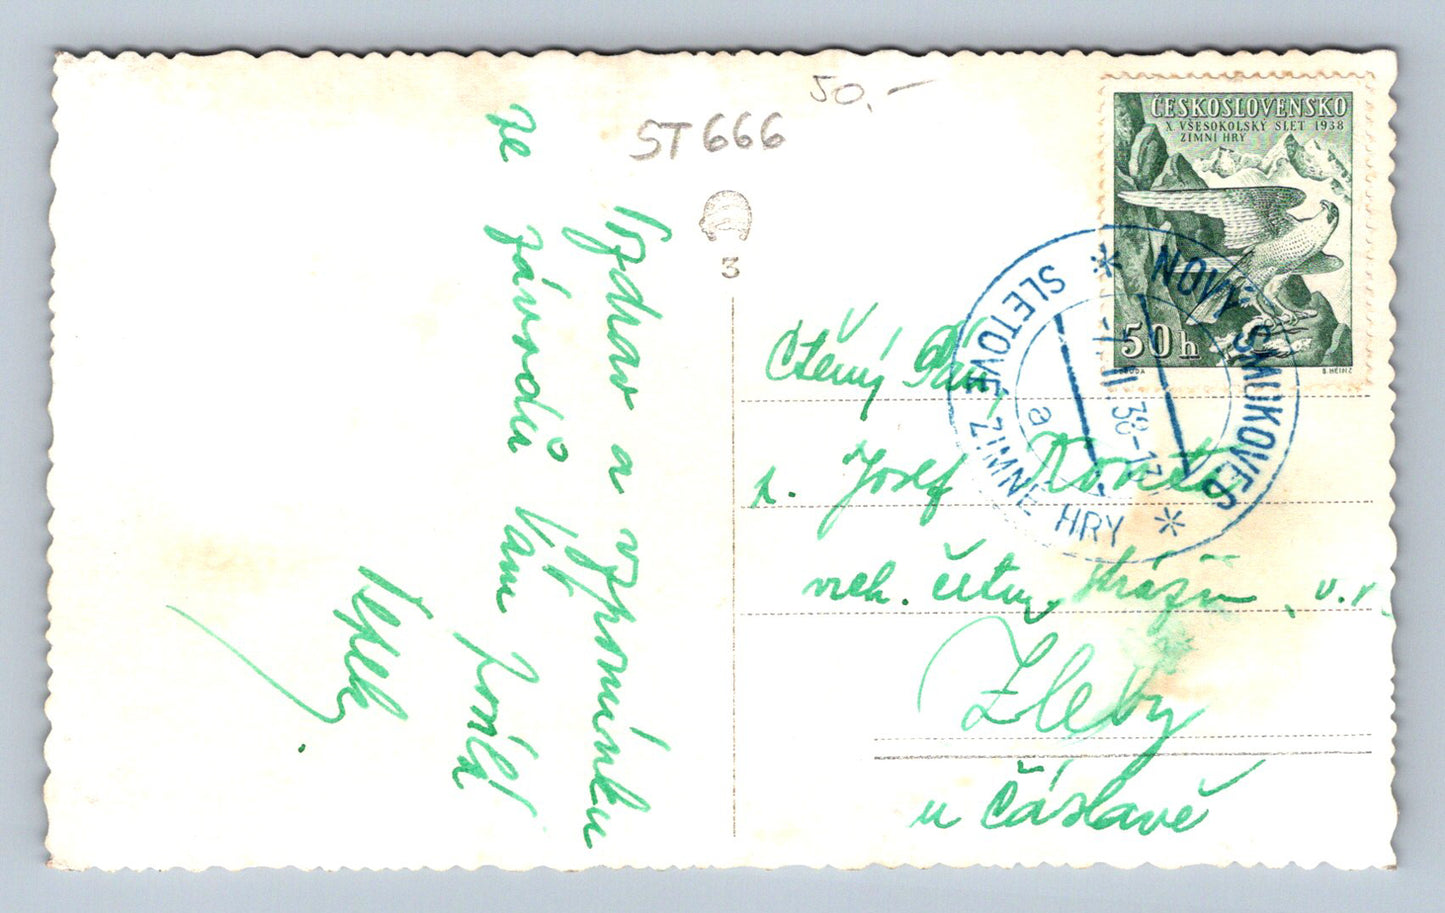 50,-
ST666
3
Pozdrav a vzpomínku
ze závodů Vám posílá
ČESKOSLOVENSKO
X. VŠESOKOLSKÝ SLET 1938
ZIMNÍ HRY
50h
B. HEINZ
* NOVÝ SMOKOVEC * SLETOVÉ ZIMNÉ HRY
II 38-17
a
Ctěný Pán
p. Josef
vrch. četn. strážm. v.v.
Žleby
u Čáslavě